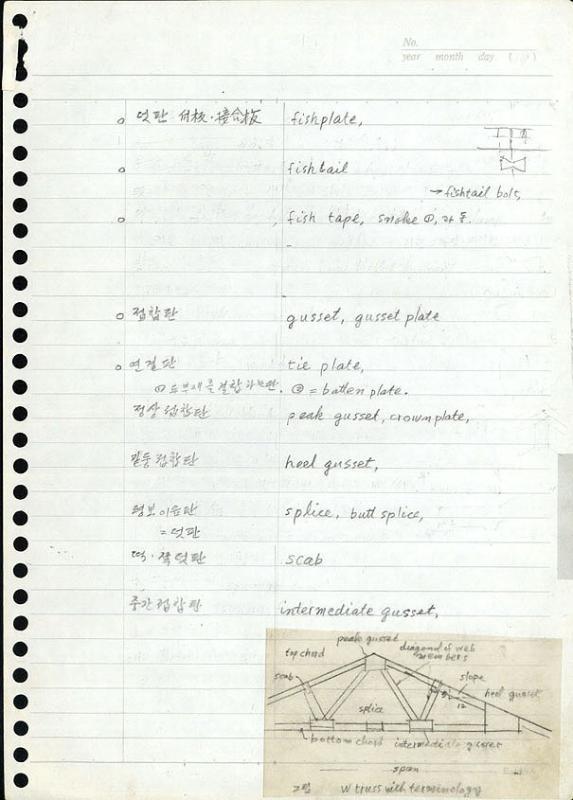 No.
year month day ( )
덧판 付板·接合板 fishplate,
fishtail
→ fishtail bolt,
fish tape, snake ①,
접합판 gusset, gusset plate
연결판 tie plate,
① 두부재를 결합하는판. ② = batten plate.
정상접합판 peak gusset, crown plate,
heel gusset,
평보이음판 splice, butt splice,
= 덧판
scab
중간접합판 intermediate gusset,
peak gusset
top chord
diagonal of web members
scab
slope
12
heel gusset
splice
bottom chord intermediate gusset
span
그림 W truss with terminology